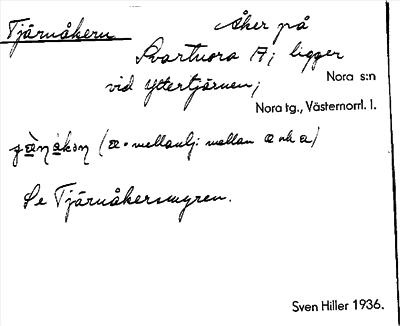 Tjärnåkern
Åker på
Svartnora 17; ligger
vid Yttertjärnen;
Nora s:n
Nora tg., Västernorrl. l.
(æ = mellanlj. mellan æ och a)
Se Tjärnåkersmyren.
Sven Hiller 1936.